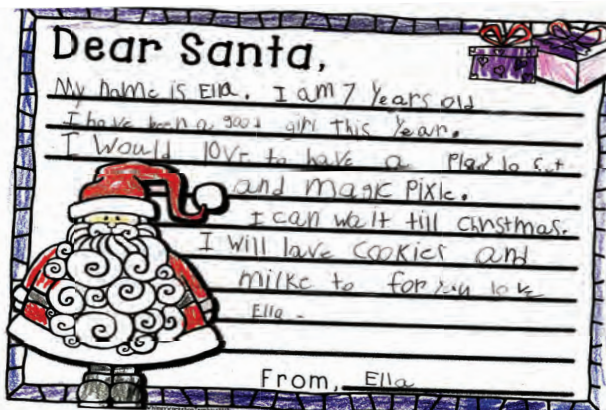 Dear Santa,
My name is Ella. I am 7 years old
I have been a good girl this year.
I would love to have a Play to Set
and magic Pixie.
I can wait till christmas.
I will lave cookies and
milke to for you love
Ella.
From, Ella